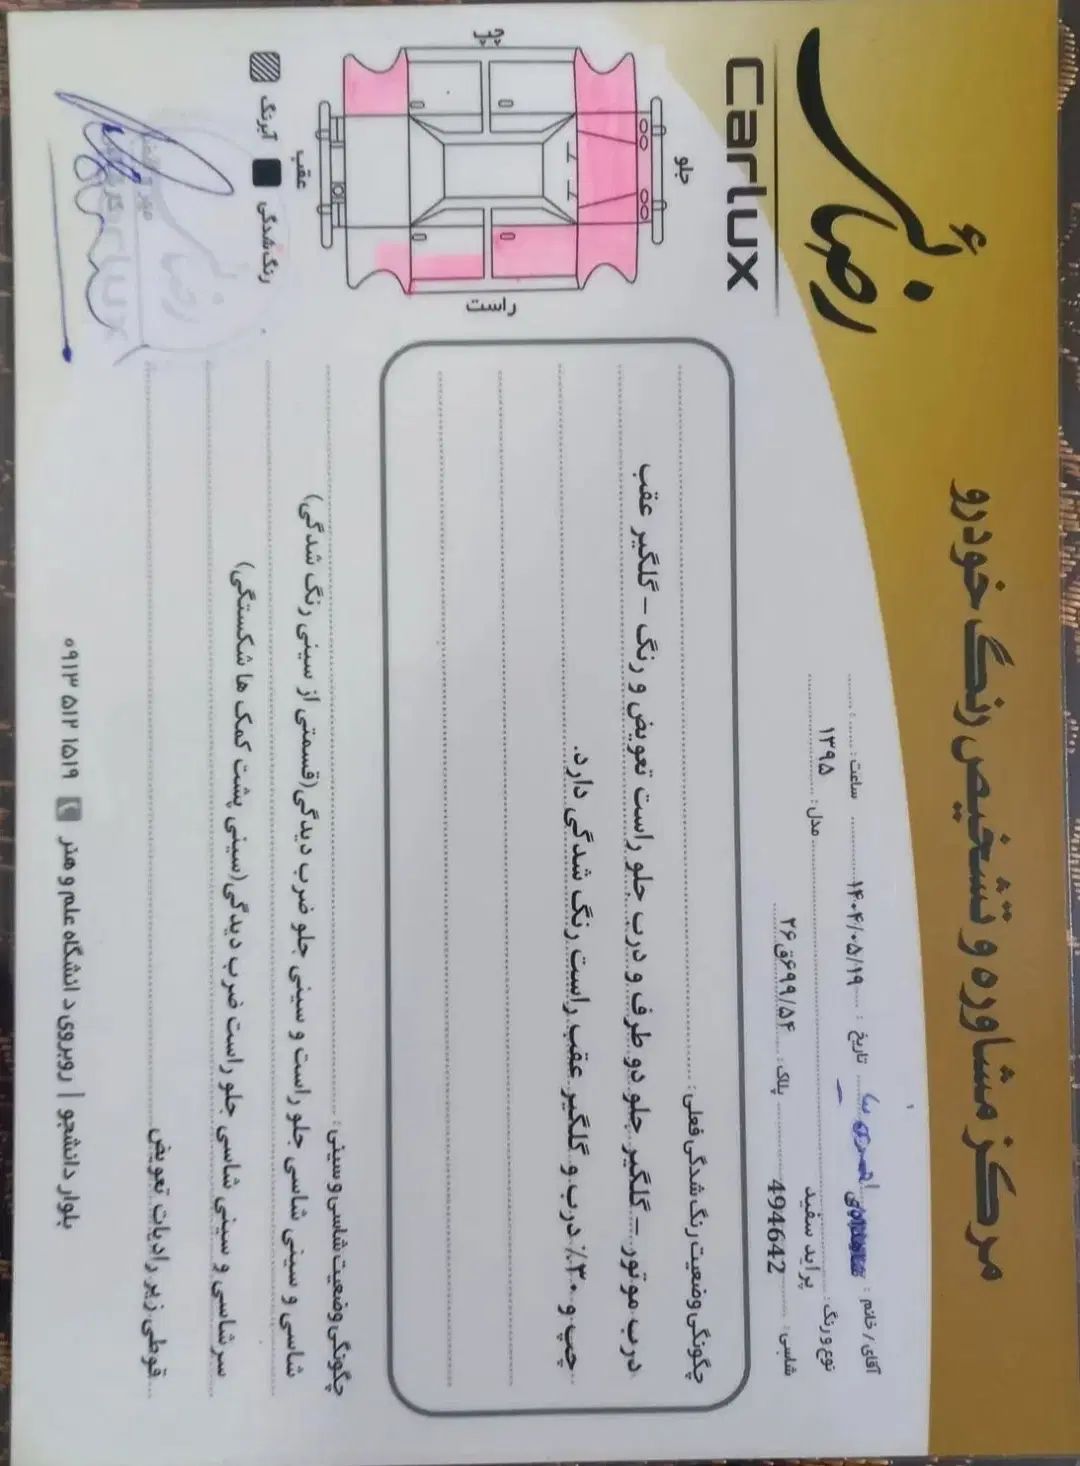 مرکز مشاوره و تشخیص رنگ خودرو
رضائی
Carlux
آقای / خانم : تاریخ : ۱۴۰۴/۰۵/۱۹ ساعت :
نوع و رنگ : پراید سفید مدل : ۱۳۹۵
شاسی : 494642 پلاک : ۶۹۹/۵۴ق۲۶
جلو
چپ
راست
عقب
رنگ شدگی
آبرنگ
چگونگی وضعیت رنگ شدگی فعلی :
درب موتور - گلگیر جلو دو طرف و درب جلو راست تعویض و رنگ - گلگیر عقب
چپ و ۳۰٪ درب و گلگیر عقب راست رنگ شدگی دارد.
چگونگی وضعیت شاسی و سینی :
شاسی و سینی شاسی جلو راست و سینی جلو ضرب دیدگی(قسمتی از سینی رنگ شدگی)
سرشاسی و سینی شاسی جلو راست ضرب دیدگی(سینی پشت کمک ها شکستگی)
قوطی زیر رادیات تعویض
بلوار دانشجو | روبروی دانشگاه علم و هنر ۰۹۱۳ ۵۱۲ ۱۵۱۹